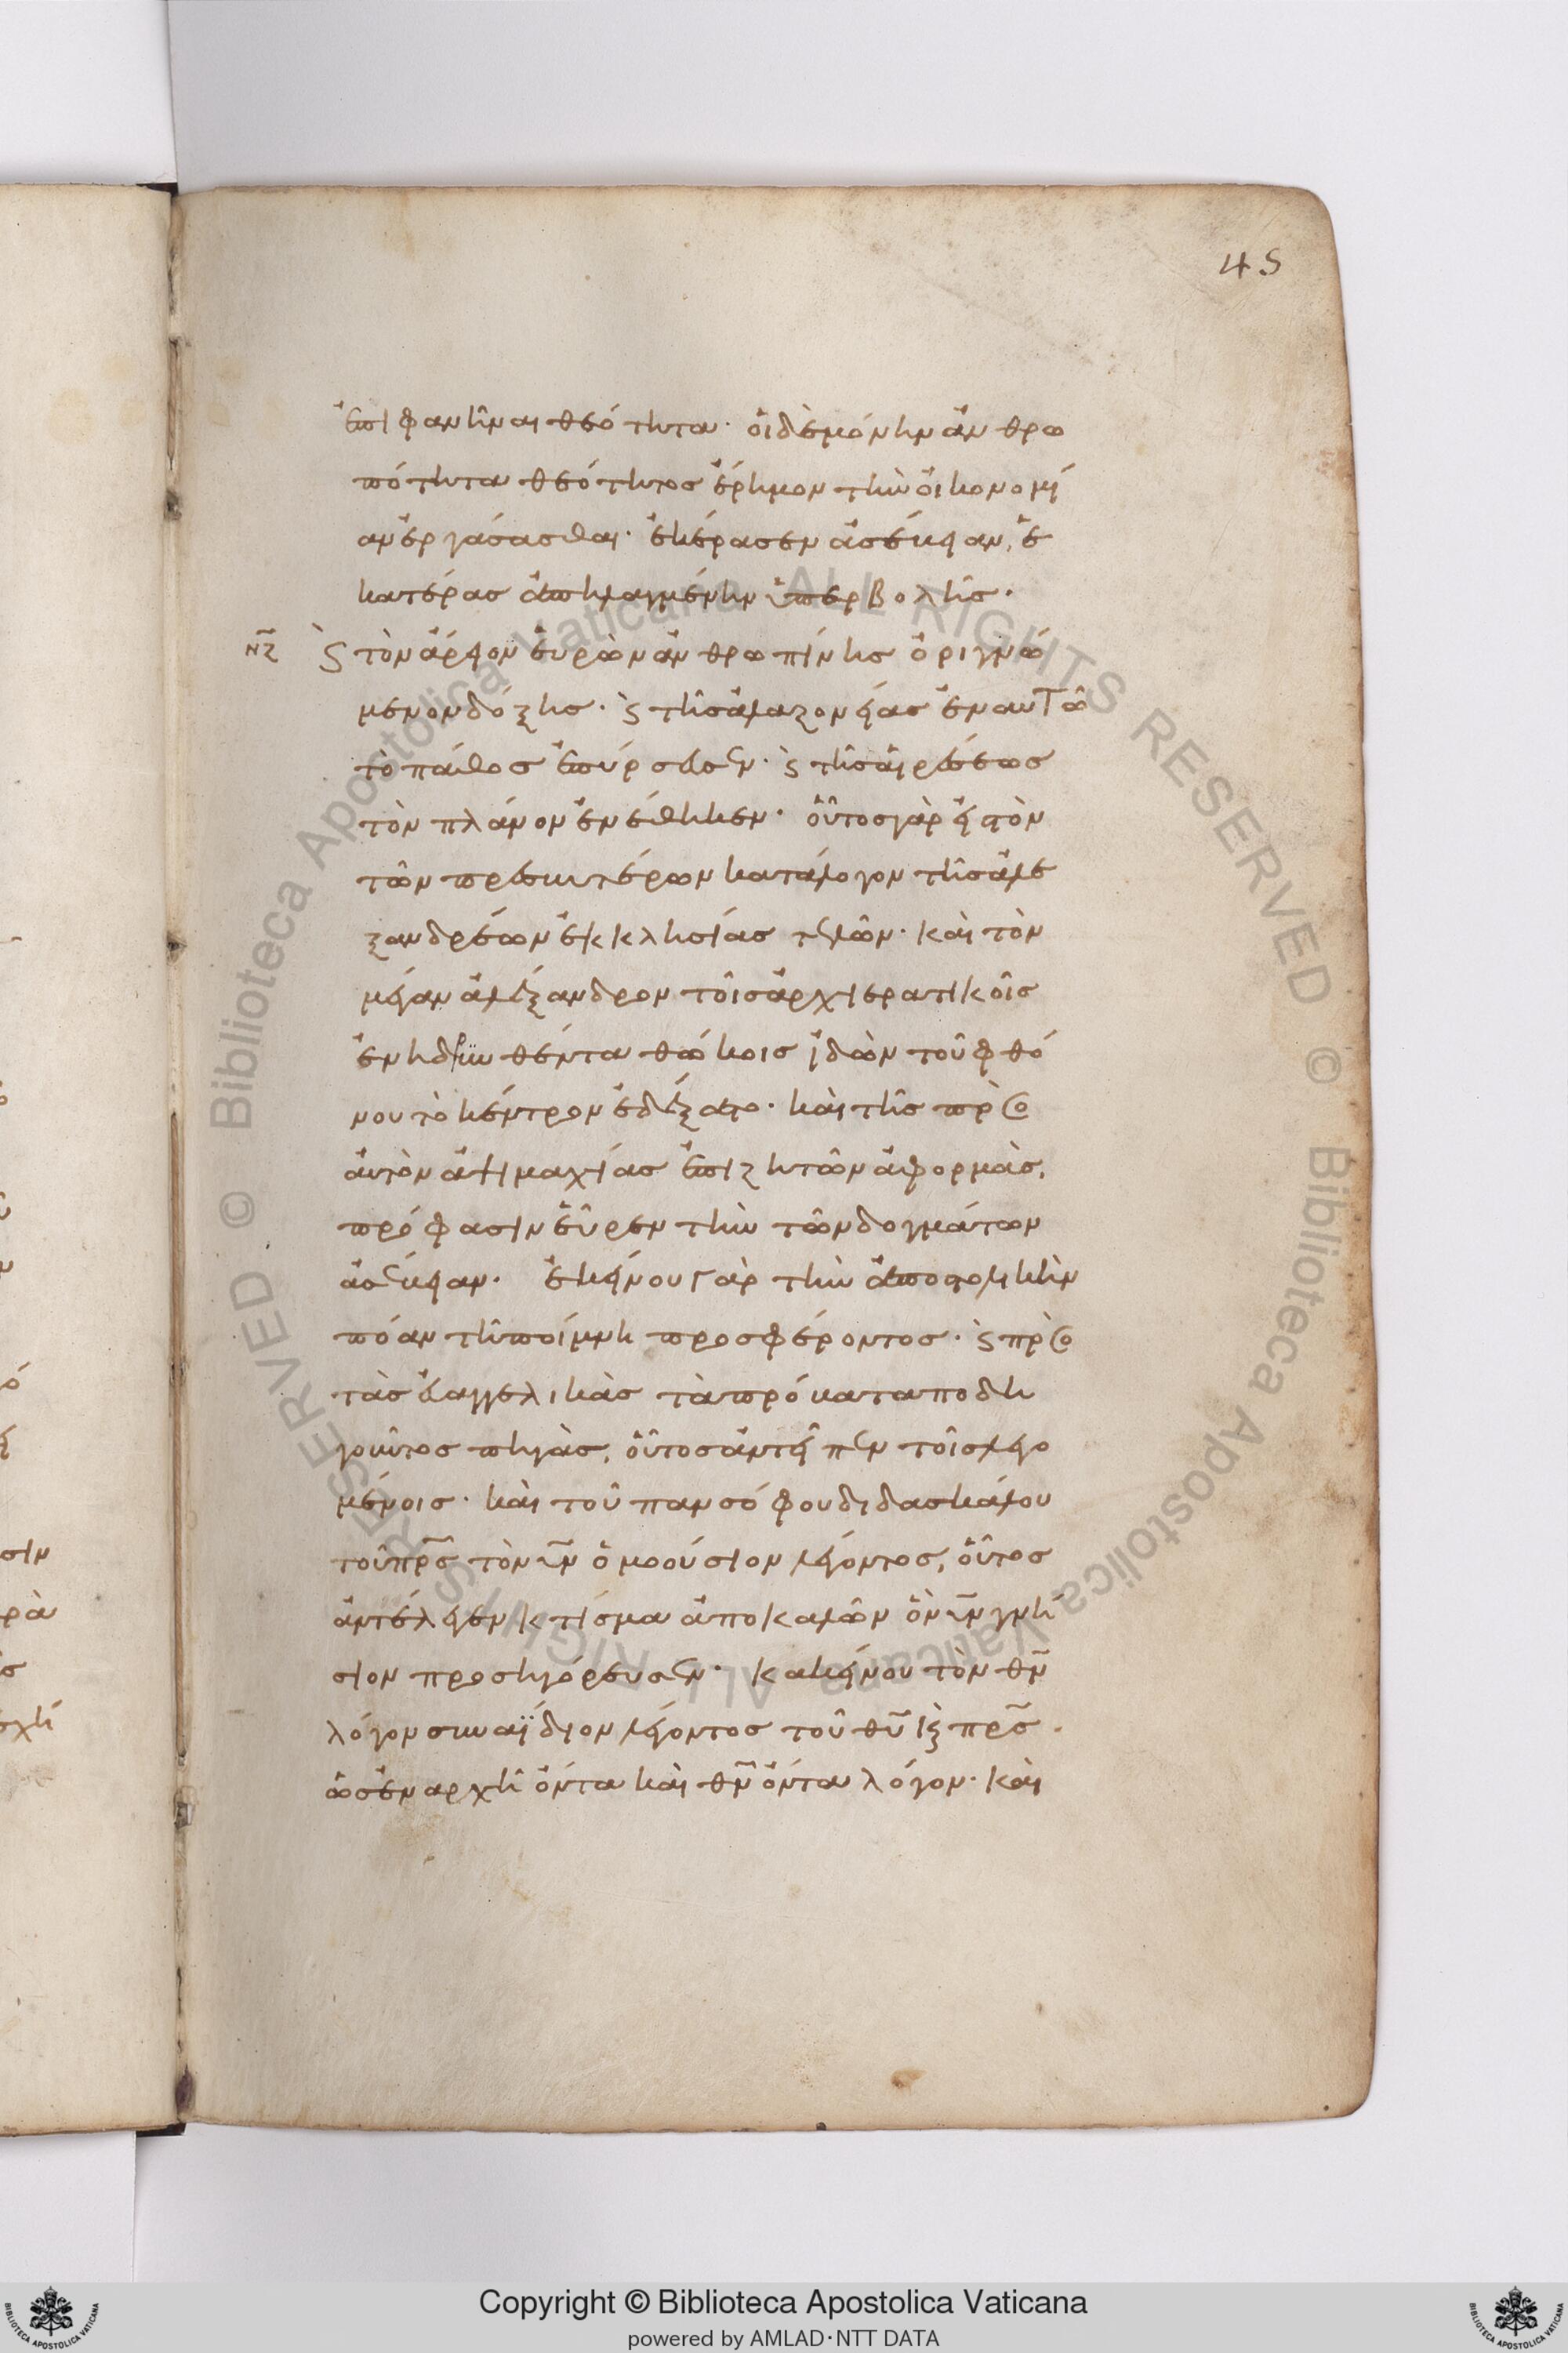 45
ἐπιφανῆναι θεότητα· οἱ δὲ μόνην ἀνθρω
πότητα θεότητος ἔρημον τὴν οἰκονομί
αν ἐργάσασθαι· ἐκέρασεν ἀσέβειαν, ἑ
κατέρας ἀπηλλαγμένην ὑπερβολῆς·
νζ ϛ τὸν ἄρειον εὑρὼν ἀνθρωπίνης ὀριγνώ
μενον δόξης· ϛ τῆς ἀλαζονείας ἐν αυτῶ
τὸ πάθος ἐπύρσευσεν· ϛ τῆς αἱρέσεως
τὸν πλάνον ἐνέθηκεν· οὗτος γὰρ εἰς τὸν
τῶν πρεσβυτέρων κατάλογον τῆς ἀλε
ξανδρέων ἐκκλησίας τελῶν· καὶ τὸν
μέγαν ἀλέξανδρον τοῖς ἀρχιερατικοῖς
ἐνιδρυνθέντα θώκοις ἰδὼν τοῦ φθό
νου τὸ κέντρον ἐδέξατο· καὶ τῆς πρὸς
αὐτὸν ἀψιμαχίας ἐπιζητῶν ἀφορμὰς,
πρόφασιν εὗρεν τὴν τῶν δογμάτων
ἀσέβειαν· ἐκείνου γὰρ τὴν ἀποστολικὴν
πόαν τῆ ποίμνη προσφέροντος· ϛ πρὸς
τὰς εὐαγγελικὰς τὰ πρόβατα ποδη
γοῦντος πηγὰς, οὗτος ἀντεῖπεν τοῖς λεγο
μένοις· καὶ τοῦ πανσόφου διδασκάλου
τοῦ πρς τὸν υν ὁμοούσιον λέγοντος, οὗτος
ἀντέλεγεν κτίσμα ἀποκαλῶν ὃν υν γνή
σιον προσηγόρευσεν· κακείνου τὸν θν
λόγον συναΐδιον λέγοντος τοῦ θυ ϗ πρς·
ὡς ἐν αρχῆ ὄντα καὶ θν ὄντα λόγον· καὶ
Copyright © Biblioteca Apostolica Vaticana
powered by AMLAD·NTT DATA